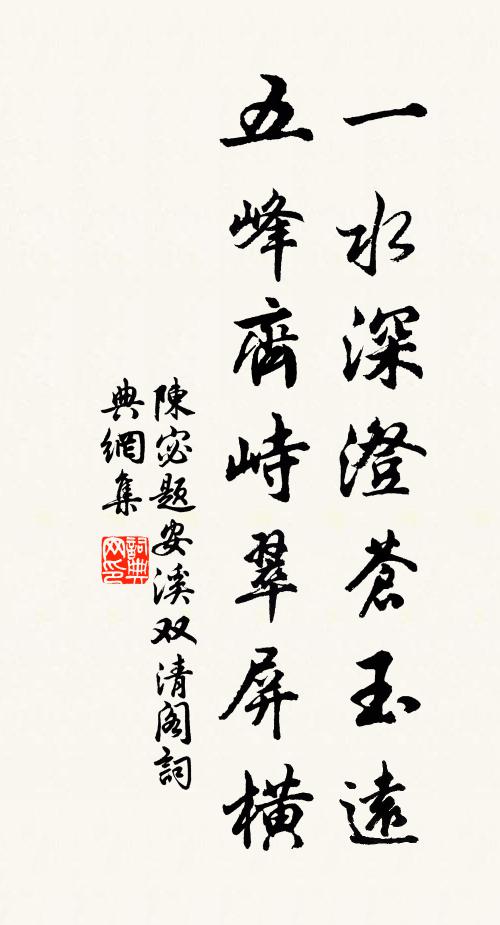 一水深澄蒼玉遠
五峰齊峙翠屏橫
陳宓題安溪双清阁詞
典網集
詞典
网印